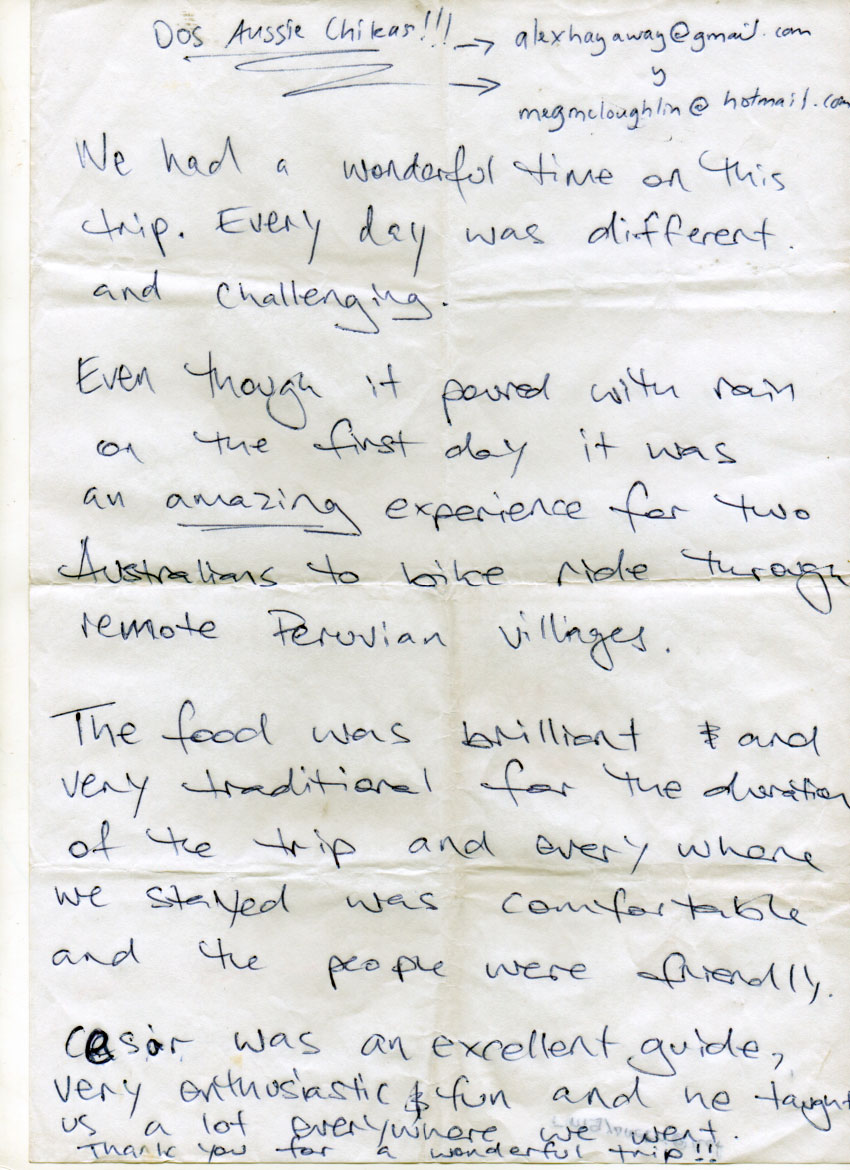 Dos Aussie Chikas!!! → alexhayaway@gmail.com
y
→ megmcloughlin@hotmail.com
We had a wonderful time on this
trip. Every day was different.
and challenging.
Even though it poured with rain
on the first day it was
an amazing experience for two
Australians to bike ride through
remote Peruvian villages.
The food was brilliant and
very traditional for the duration
of the trip and every where
we stayed was comfortable
and the people were friendly.
Cesar was an excellent guide,
very enthusiastic & fun and he taught
us a lot everywhere we went.
Thank you for a wonderful trip!!